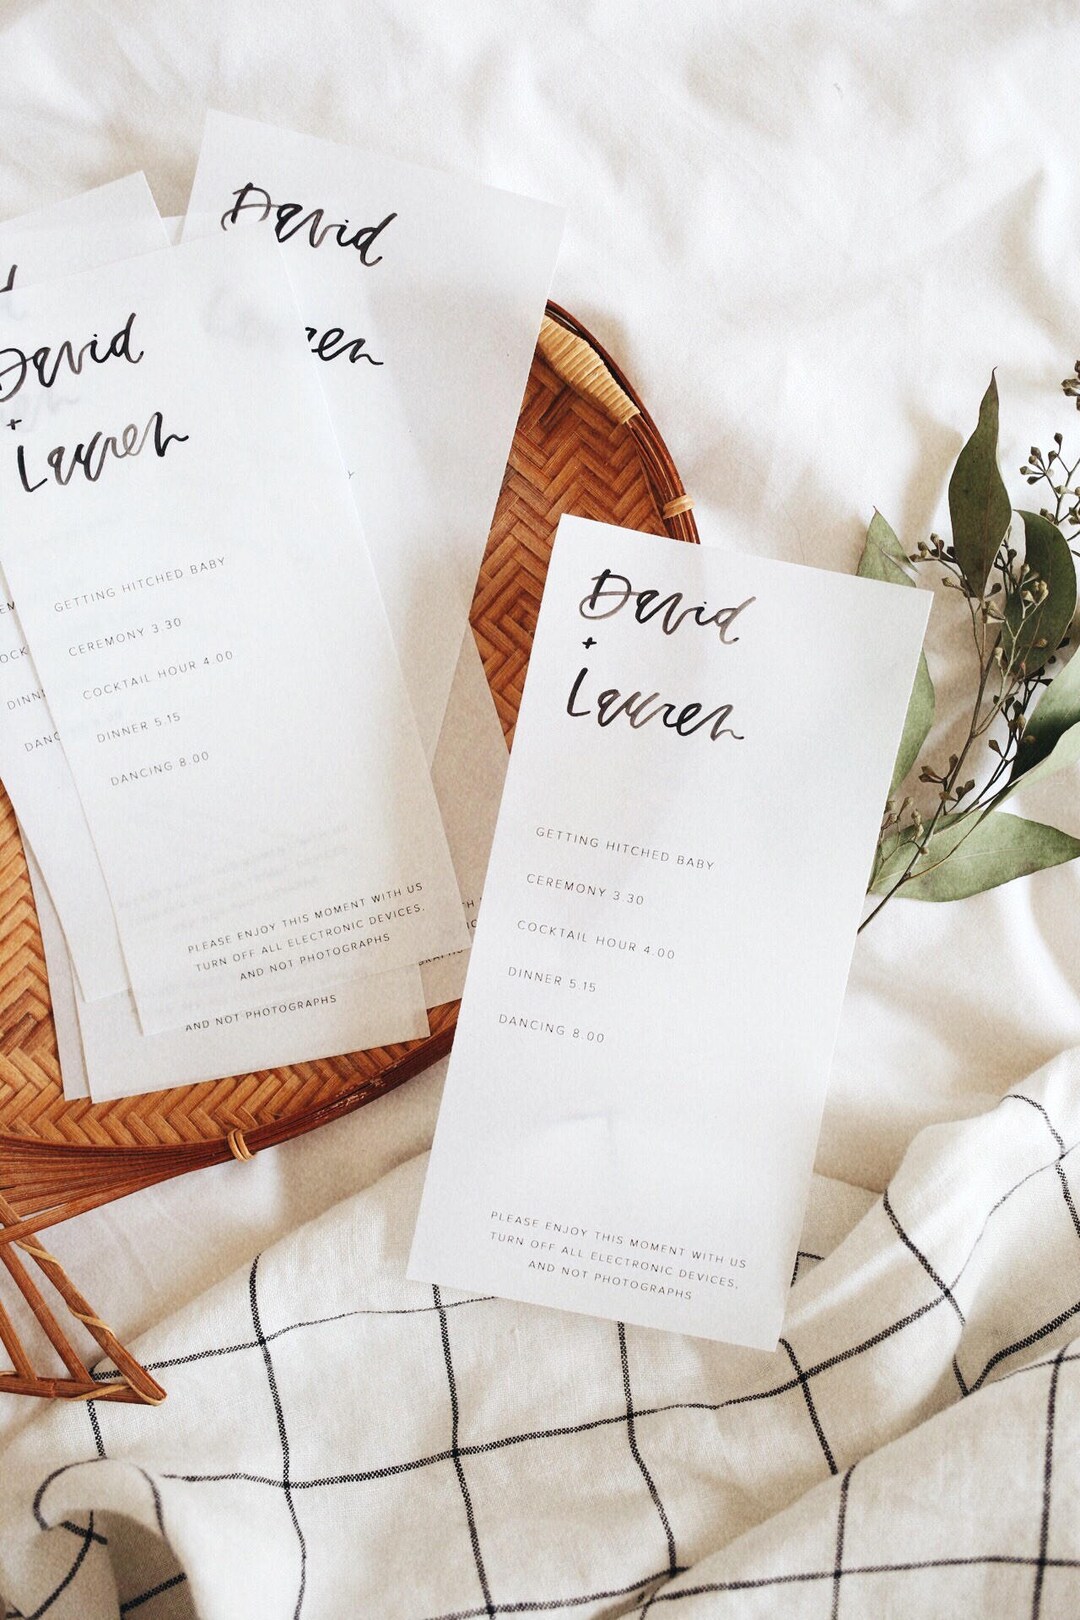 David
David
+
Lauren
GETTING HITCHED BABY
CEREMONY 3.30
COCKTAIL HOUR 4.00
DINNER 5.15
DANCING 8.00
PLEASE ENJOY THIS MOMENT WITH US
TURN OFF ALL ELECTRONIC DEVICES,
AND NOT PHOTOGRAPHS
AND NOT PHOTOGRAPHS
David
+
Lauren
GETTING HITCHED BABY
CEREMONY 3.30
COCKTAIL HOUR 4.00
DINNER 5.15
DANCING 8.00
PLEASE ENJOY THIS MOMENT WITH US
TURN OFF ALL ELECTRONIC DEVICES,
AND NOT PHOTOGRAPHS